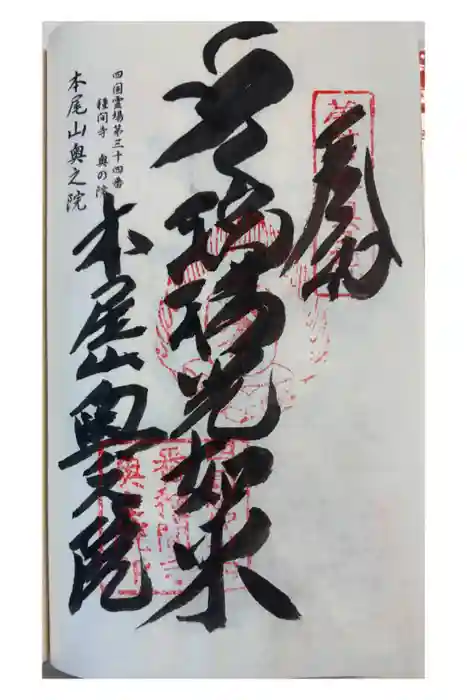 奉納
瑠璃光如来
四国霊場第三十四番
種間寺 奥の院
本尾山奥之院
本尾山奥之院